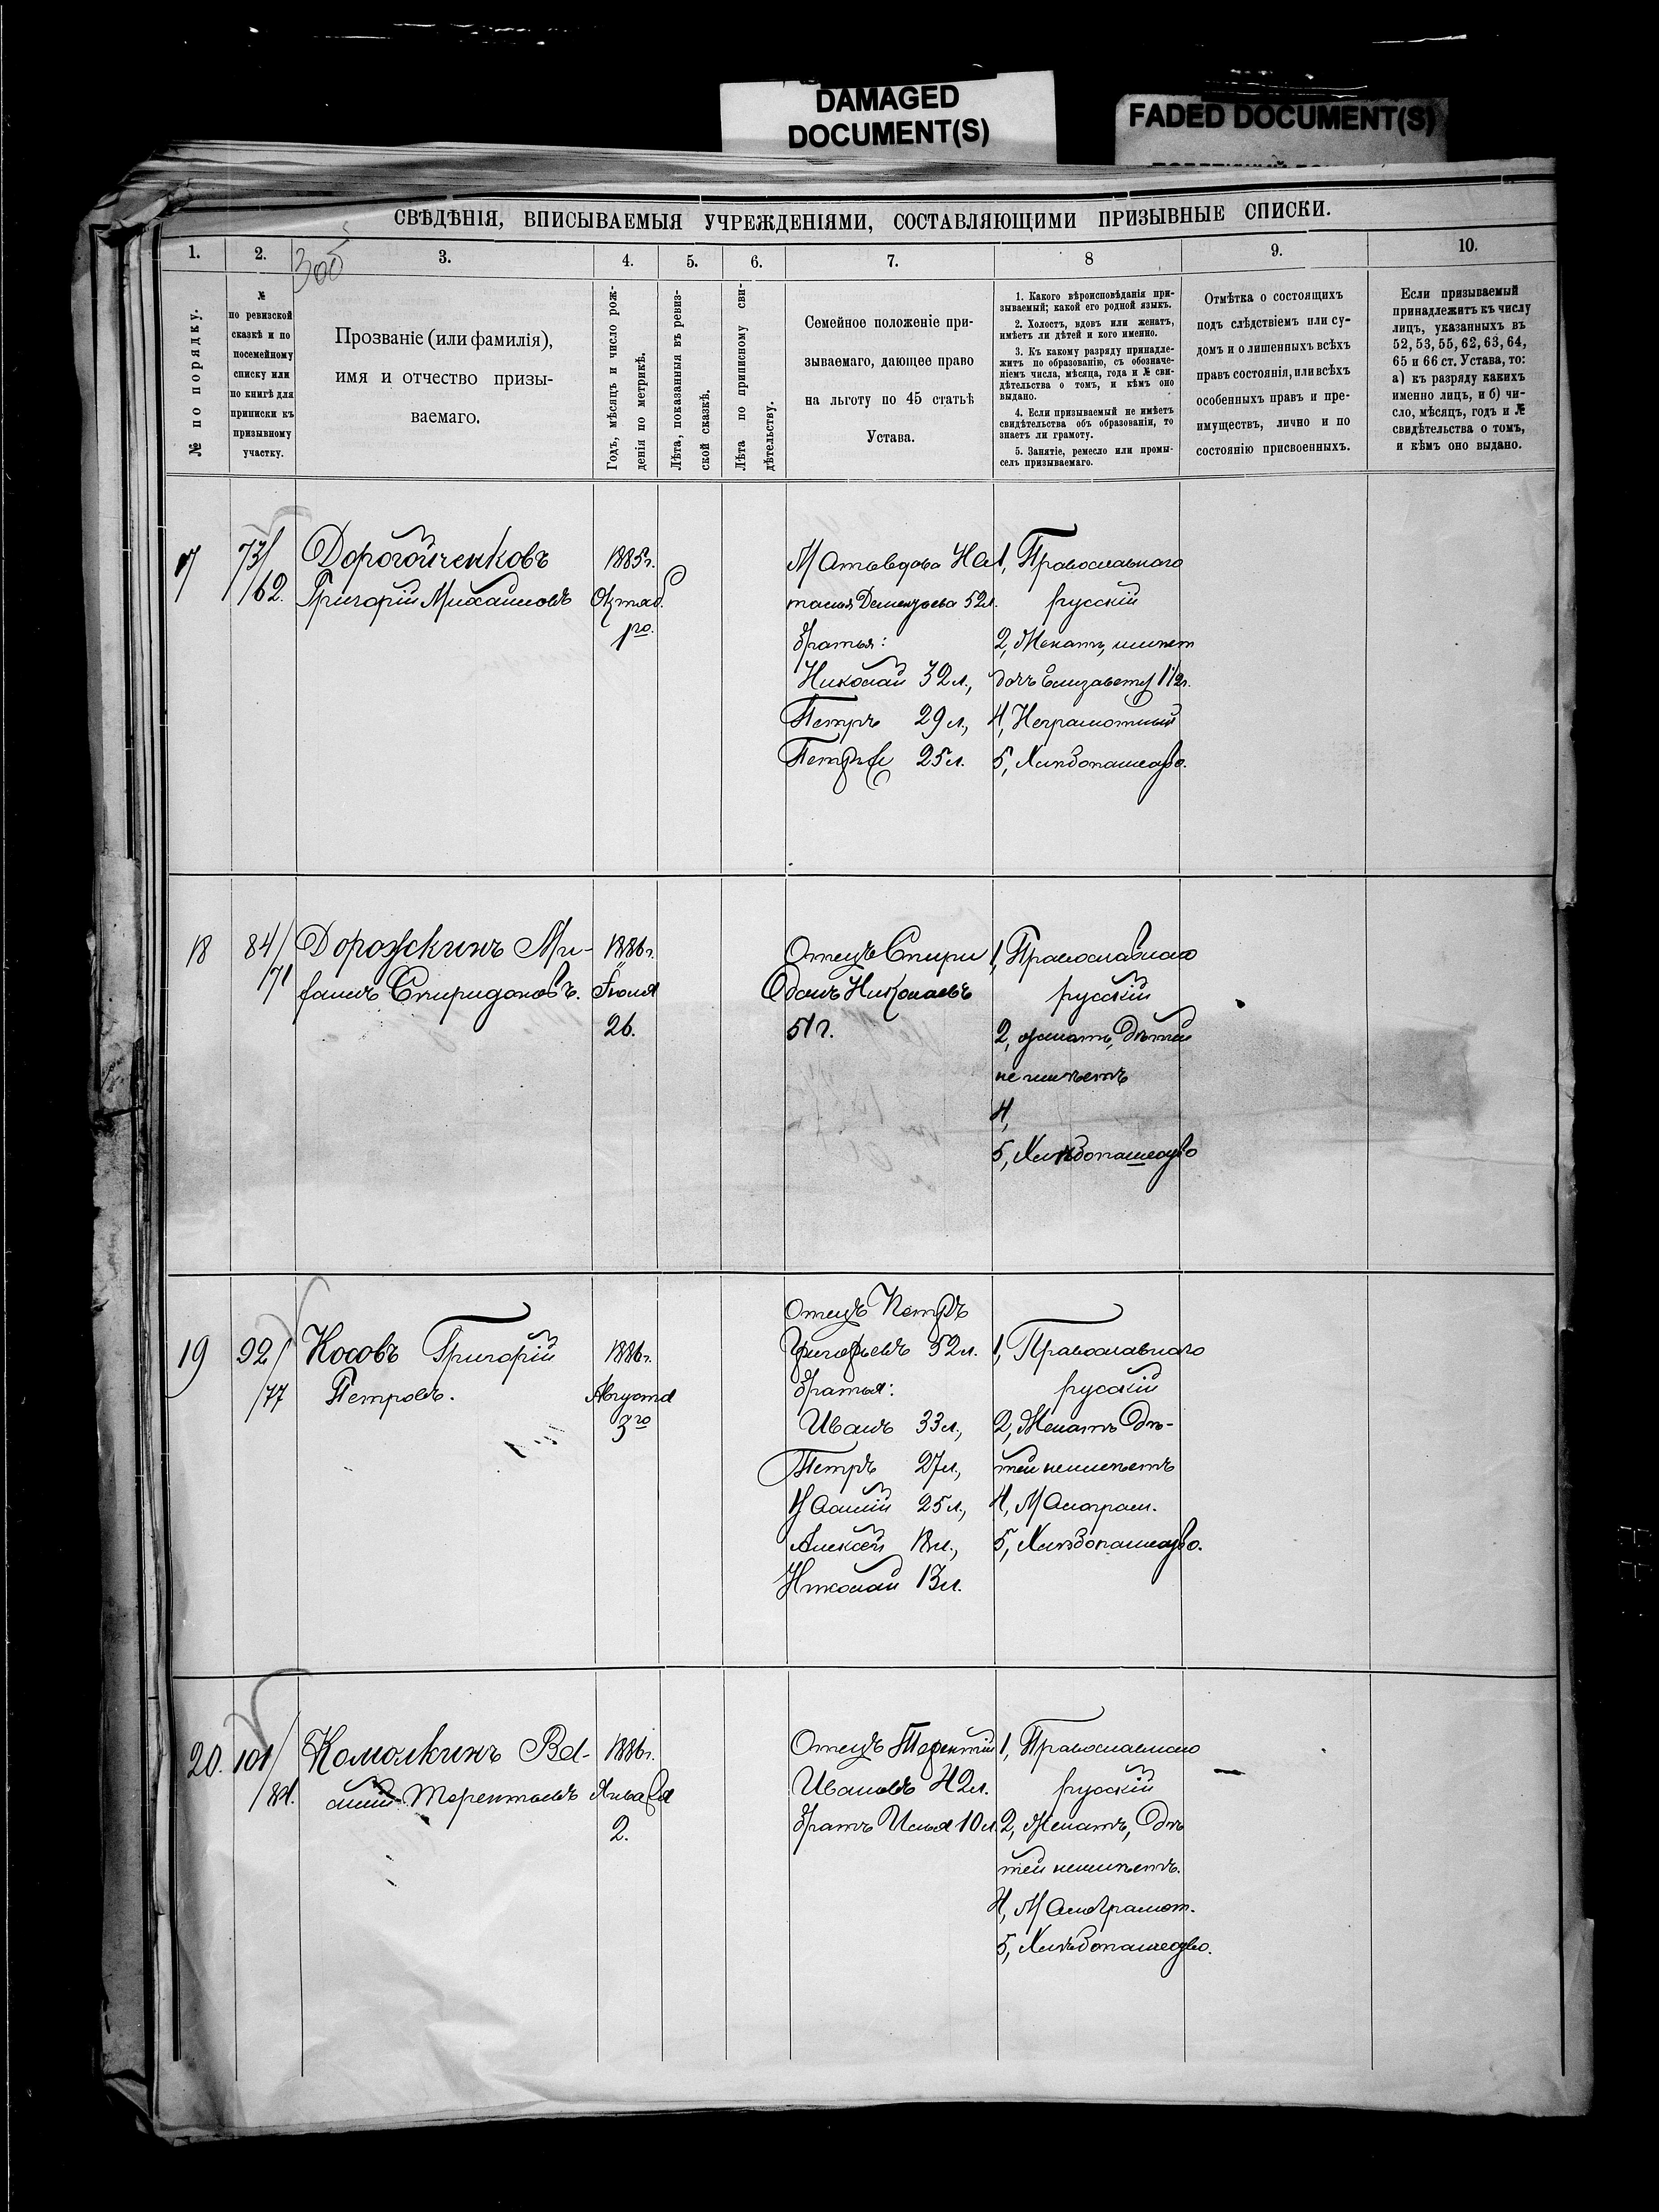 DAMAGED
DOCUMENT(S)
FADED DOCUMENT(S)
СВѢДѢНІЯ, ВПИСЫВАЕМЫЯ УЧРЕЖДЕНІЯМИ, СОСТАВЛЯЮЩИМИ ПРИЗЫВНЫЕ СПИСКИ.
1.
2.
3.
4.
5.
6.
7.
8
9.
10.
№ по порядку.
№
по ревизской
сказкѣ и по
посемейному
списку или
по книгѣ для
приписки къ
призывному
участку.
Прозваніе (или фамилія),
имя и отчество призы-
ваемаго.
Годъ, мѣсяцъ и число рож-
денія по метрикѣ.
Лѣта, показанныя въ ревиз-
ской сказкѣ.
Лѣта по приписному сви-
дѣтельству.
Семейное положеніе при-
зываемаго, дающее право
на льготу по 45 статьѣ
Устава.
1. Какого вѣроисповѣданія при-
зываемый; какой его родной языкъ.
2. Холостъ, вдовъ или женатъ,
имѣетъ ли дѣтей и кого именно.
3. Къ какому разряду принадле-
житъ по образованію, съ обозначе-
ніемъ числа, мѣсяца, года и № сви-
дѣтельства о томъ, и кѣмъ оно
выдано.
4. Если призываемый не имѣетъ
свидѣтельства объ образованіи, то
знаетъ ли грамоту.
5. Занятіе, ремесло или промы-
селъ призываемаго.
Отмѣтка о состоящихъ
подъ слѣдствіемъ или су-
домъ и о лишенныхъ всѣхъ
правъ состоянія, или всѣхъ
особенныхъ правъ и пре-
имуществъ, лично и по
состоянію присвоенныхъ.
Если призываемый
принадлежитъ къ числу
лицъ, указанныхъ въ
52, 53, 55, 62, 63, 64,
65 и 66 ст. Устава, то:
а) къ разряду какихъ
именно лицъ, и б) чи-
сло, мѣсяцъ, годъ и №
свидѣтельства о томъ,
и кѣмъ оно выдано.
73/
/62.
Дорогойченковъ
Григорій Михаиловъ
1885г.
Октяб.
1го.
Мать вдова На
талья Деменьтьева 52л.
братья:
Николай 32 л.,
Петръ 29 л.,
25 л.
1, Православнаго
русскій
2, Женатъ, имѣет
дочь Елизавету 1 1/2г.
4, Неграмотный
5, Хлѣбопашество.
18
84/
/71
Дорожкинъ Ми-
фанъ Спиридоновъ.
1886г.
Іюля
26.
Отецъ Спири
донъ Николаевъ
51 г.
1, Православнаго
русскій
2, женатъ, дѣтей
не имѣетъ
4,
5, Хлѣбопашество
19
92/
/77
Косовъ Григорій
Петровъ.
1886г.
Августа
3го
Отецъ Петръ
Григорьевъ 52 л.
братья:
Иванъ 33 л.,
Петръ 27 л.,
25 л.,
Алексѣй 18 л.,
Николай 13 л.
1, Православнаго
русскій
2, Женатъ дѣ-
тей неимѣетъ
4, Малограм.
5, Хлѣбопашество.
20.
101/
/84.
Комолкинъ Ва-
силій Терентьевъ
1886г.
Января
2.
Отецъ Терентій
Ивановъ 42 л.
братъ Илья 10 л.
1, Православнаго
русскій
2, Женатъ, дѣ
тей неимѣетъ.
4, Малограмот.
5, Хлѣбопашество.